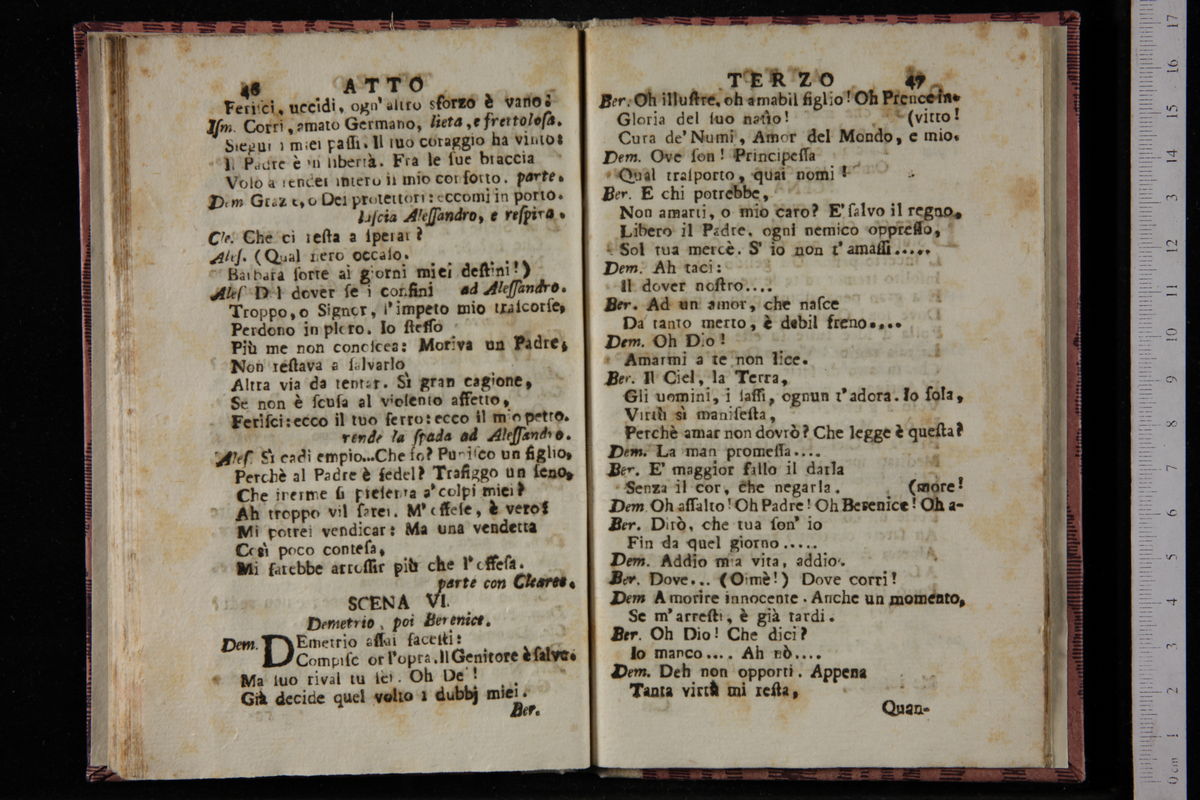 46 ATTO
Ferisci, uccidi, ogn' altro sforzo è vano:
Ism. Corri, amato Germano, lieta, e frettolosa.
Siegui i miei passi. Il tuo coraggio ha vinto:
Il Padre è in libertà. Fra le sue braccia
Volo a render intero il mio conforto. parte.
Dem Grazie, o Dei protettori: eccomi in porto.
lascia Alessandro, e respira.
Cle. Che ci resta a sperar?
Ales. (Qual nero occaso.
Barbara sorte ai giorni miei destini!)
Ales Del dover se i confini ad Alessandro.
Troppo, o Signor, l'impeto mio trascorse,
Perdono imploro. Io stesso
Più me non conoscea: Moriva un Padre,
Non restava a salvarlo
Altra via da tentar. Sì gran cagione,
Se non è scusa al violento affetto,
Ferisci: ecco il tuo ferro: ecco il mio petto.
rende la spada ad Alessandro.
Ales. Sì cadi empio...Che fo? Punisco un figlio,
Perchè al Padre è fedel? Trafiggo un seno,
Che inerme si presenta a' colpi miei?
Ah troppo vil sarei. M' offese, è vero:
Mi potrei vendicar: Ma una vendetta
Così poco contesa,
Mi sarebbe arrossir più che l'offesa.
parte con Clearco.
SCENA VI.
Demetrio, poi Berenice.
Dem. DEmetrio assai facesti:
Compisc or l'opra. Il Genitore è salvo.
Ma tuo rival tu sei. Oh De'!
Già decide quel volto i dubbj miei.
Ber.
TERZO 47
Ber. Oh illustre, oh amabil figlio! Oh Prence in-
Gloria del suo natìo! (vitto!
Cura de' Numi, Amor del Mondo, e mio.
Dem. Ove son! Principessa
Qual trasporto, quai nomi!
Ber. E chi potrebbe,
Non amarti, o mio caro? E' salvo il regno,
Libero il Padre, ogni nemico oppresso,
Sol tua mercè. S' io non t' amassi.....
Dem. Ah taci:
Il dover nostro....
Ber. Ad un amor, che nasce
Da tanto merto, è debil freno....
Dem. Oh Dio!
Amarmi a te non lice.
Ber. Il Ciel, la Terra,
Gli uomini, i sassi, ognun t' adora. Io sola,
Virtù sì manifesta,
Perchè amar non dovrò? Che legge è questa?
Dem. La man promessa....
Ber. E' maggior fallo il darla
Senza il cor, che negarla. (more!
Dem Oh assalto! Oh Padre! Oh Berenice! Oh a-
Ber. Dirò, che tua son' io
Fin da quel giorno.....
Dem. Addio mia vita, addio.
Ber. Dove... (Oimè!) Dove corri!
Dem A morire innocente. Anche un momento,
Se m' arresti, è già tardi.
Ber. Oh Dio! Che dici?
Io manco.... Ah nò....
Dem. Deh non opporti. Appena
Tanta virtù mi resta,
Quan-
0 cm 1 2 3 4 5 6 7 8 9 10 11 12 13 14 15 16 17